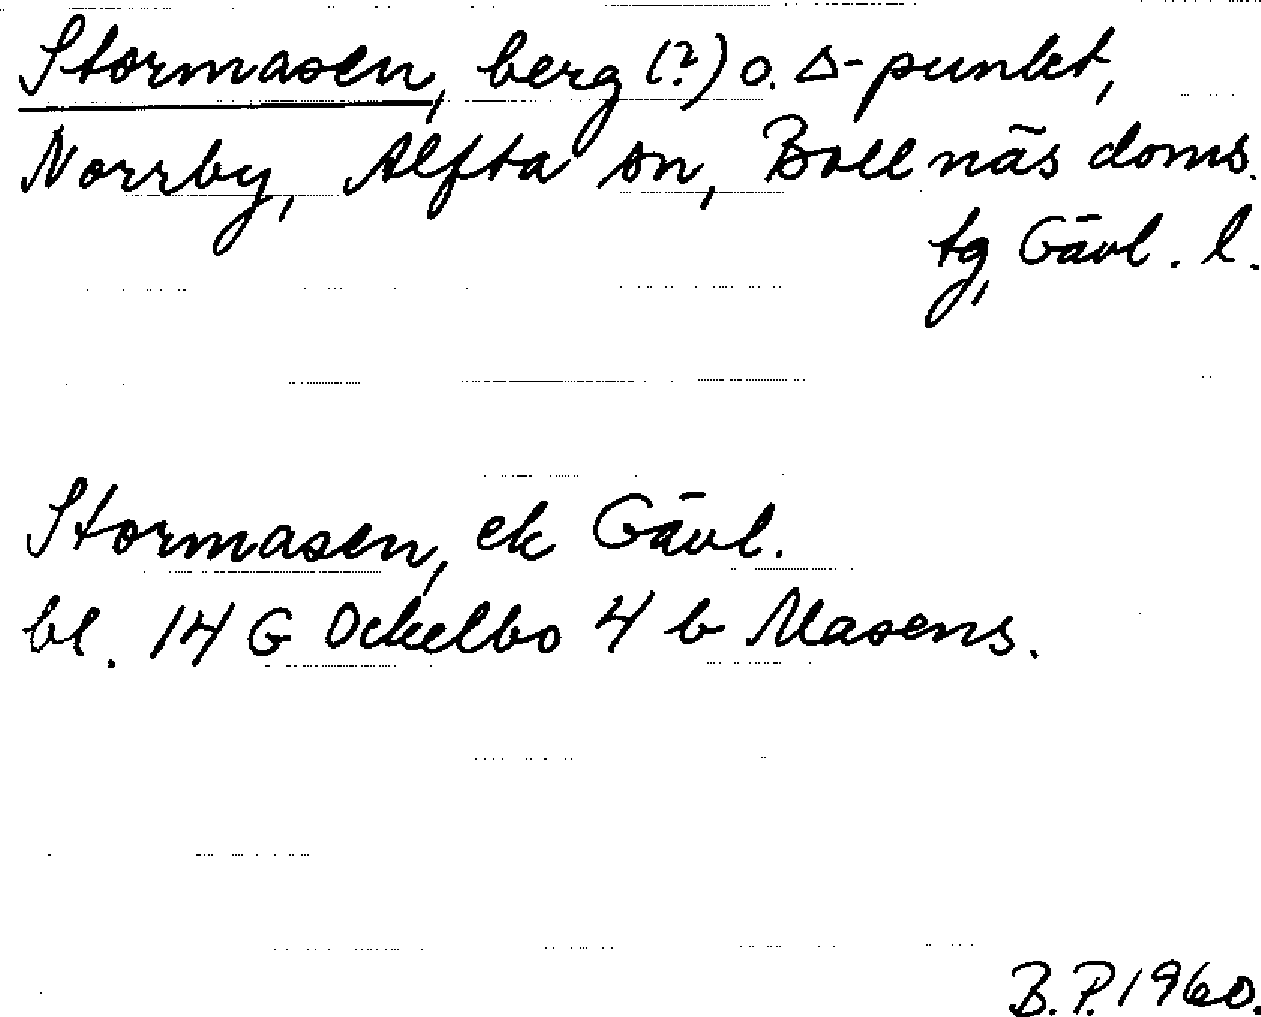 Stormasen, berg (?) o. Δ-punkt,
Norrby, Alfta sn, Bollnäs doms.
tg, Gävl. l.
Stormasen, ek Gävl.
bl. 14 G Ockelbo 4 b Masens.
B.P. 1960.